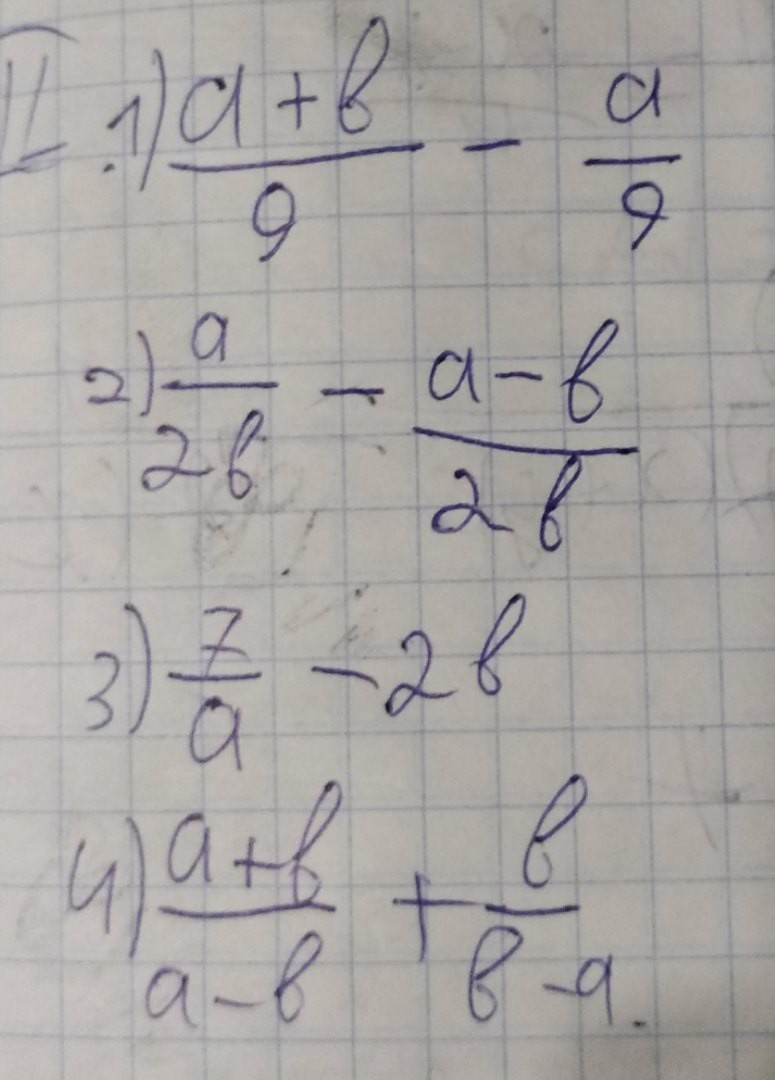 II 1) (a+b)/9 - a/9
2) a/2b - (a-b)/2b
3) 7/a - 2b
4) (a+b)/(a-b) + b/(b-a).